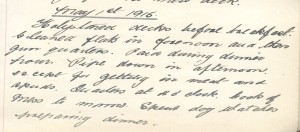 May 1st 1915
Holystoned decks before breakfast.
Cleaned flats in forenoon and then
gun quarters. Paid during dinner
hour. Pipe down in afternoon
except for getting in meat and
spuds. Quarters at
to Spent dog watches
preparing dinner.